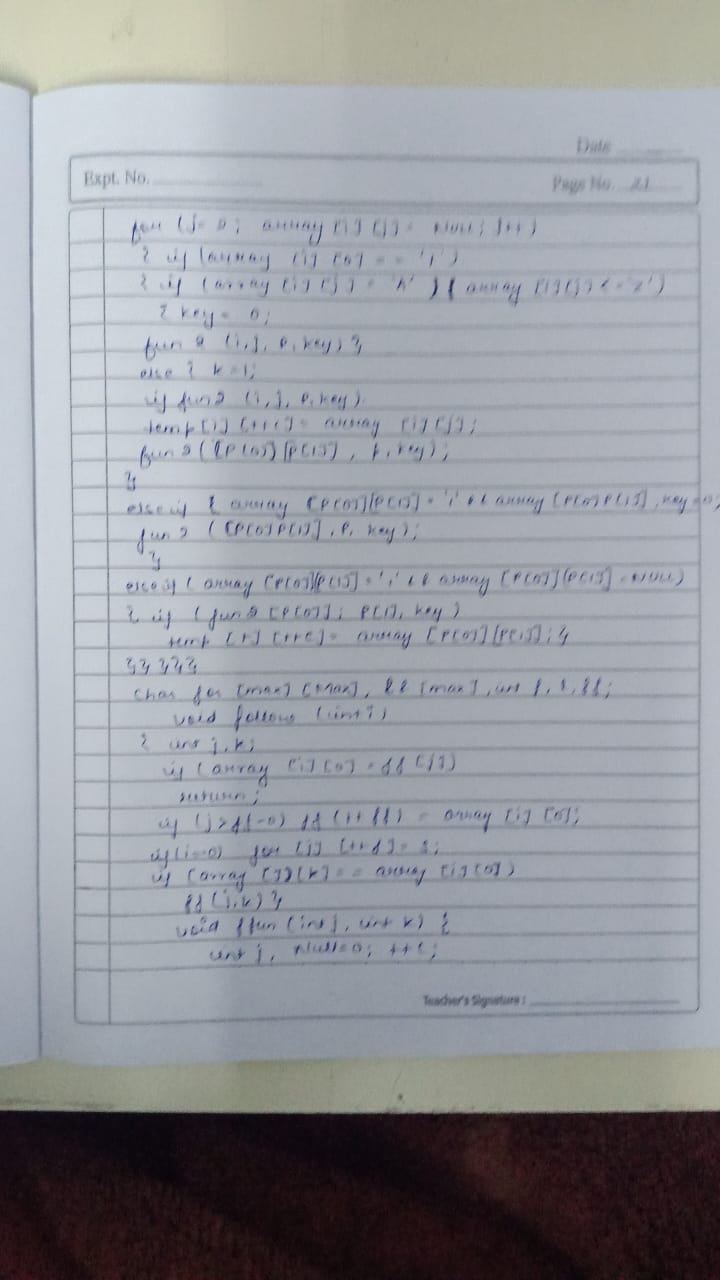 Date
Expt. No.
Page No. 21
for (j= 0; array [i] [j]= NULL; j++)
{ if (array [i] [0] = = 'i')
{ if (array [i] [j] = 'A' ) ( array [i] [j] <= 'Z')
{ key = 0;
fun 2 (i, j, P, key) }
else { k = 1;
if fun2 (i, j, P, key)
temp [i] [++c] = array [i] [j];
fun 2 ([P[0]] [P[1]] , P, key);
}
else if { array [P[0]] [P[1]] = 'i' && array [P[0] P[1]] , key = 0;
fun 2 ([P[0] P[1]] , P, key);
}
else if ( array [P[0]] [P[1]] = 'i' && array [P[0]] [P[1]] = NULL)
{ if ( fun 2 [P[0]]; P[1], key )
temp [r] [++c] = array [P[0]] [P[1]]; }
}} }}}
char for [max] [max], ff [max] , int f, l, ff;
void follow (int i)
{ int j, k;
if (array [i] [0] = ff [j])
return;
if (j > f (-0) ff (++ff) = array [i] [0];
if (i=0) for [j] [++f] = $;
if (array [j] [k] = = array [i] [0])
ff (j, k) }
void ffun (int j, int k) {
int j, Null = 0; ++c;
Teacher's Signature :